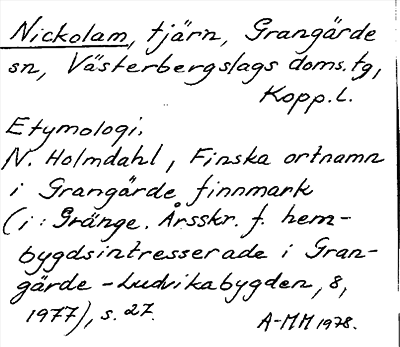 Nickolam, tjärn, Grangärde
sn, Västerbergslags doms.tg,
Kopp.l.
Etymologi.
N. Holmdahl, Finska ortnamn
i Grangärde finnmark
(i: Gränge. Årsskr. f. hem-
bygdsintresserade i Gran-
gärde-Ludvikabygden, 8,
1977), s. 27.
A-MM 1978.